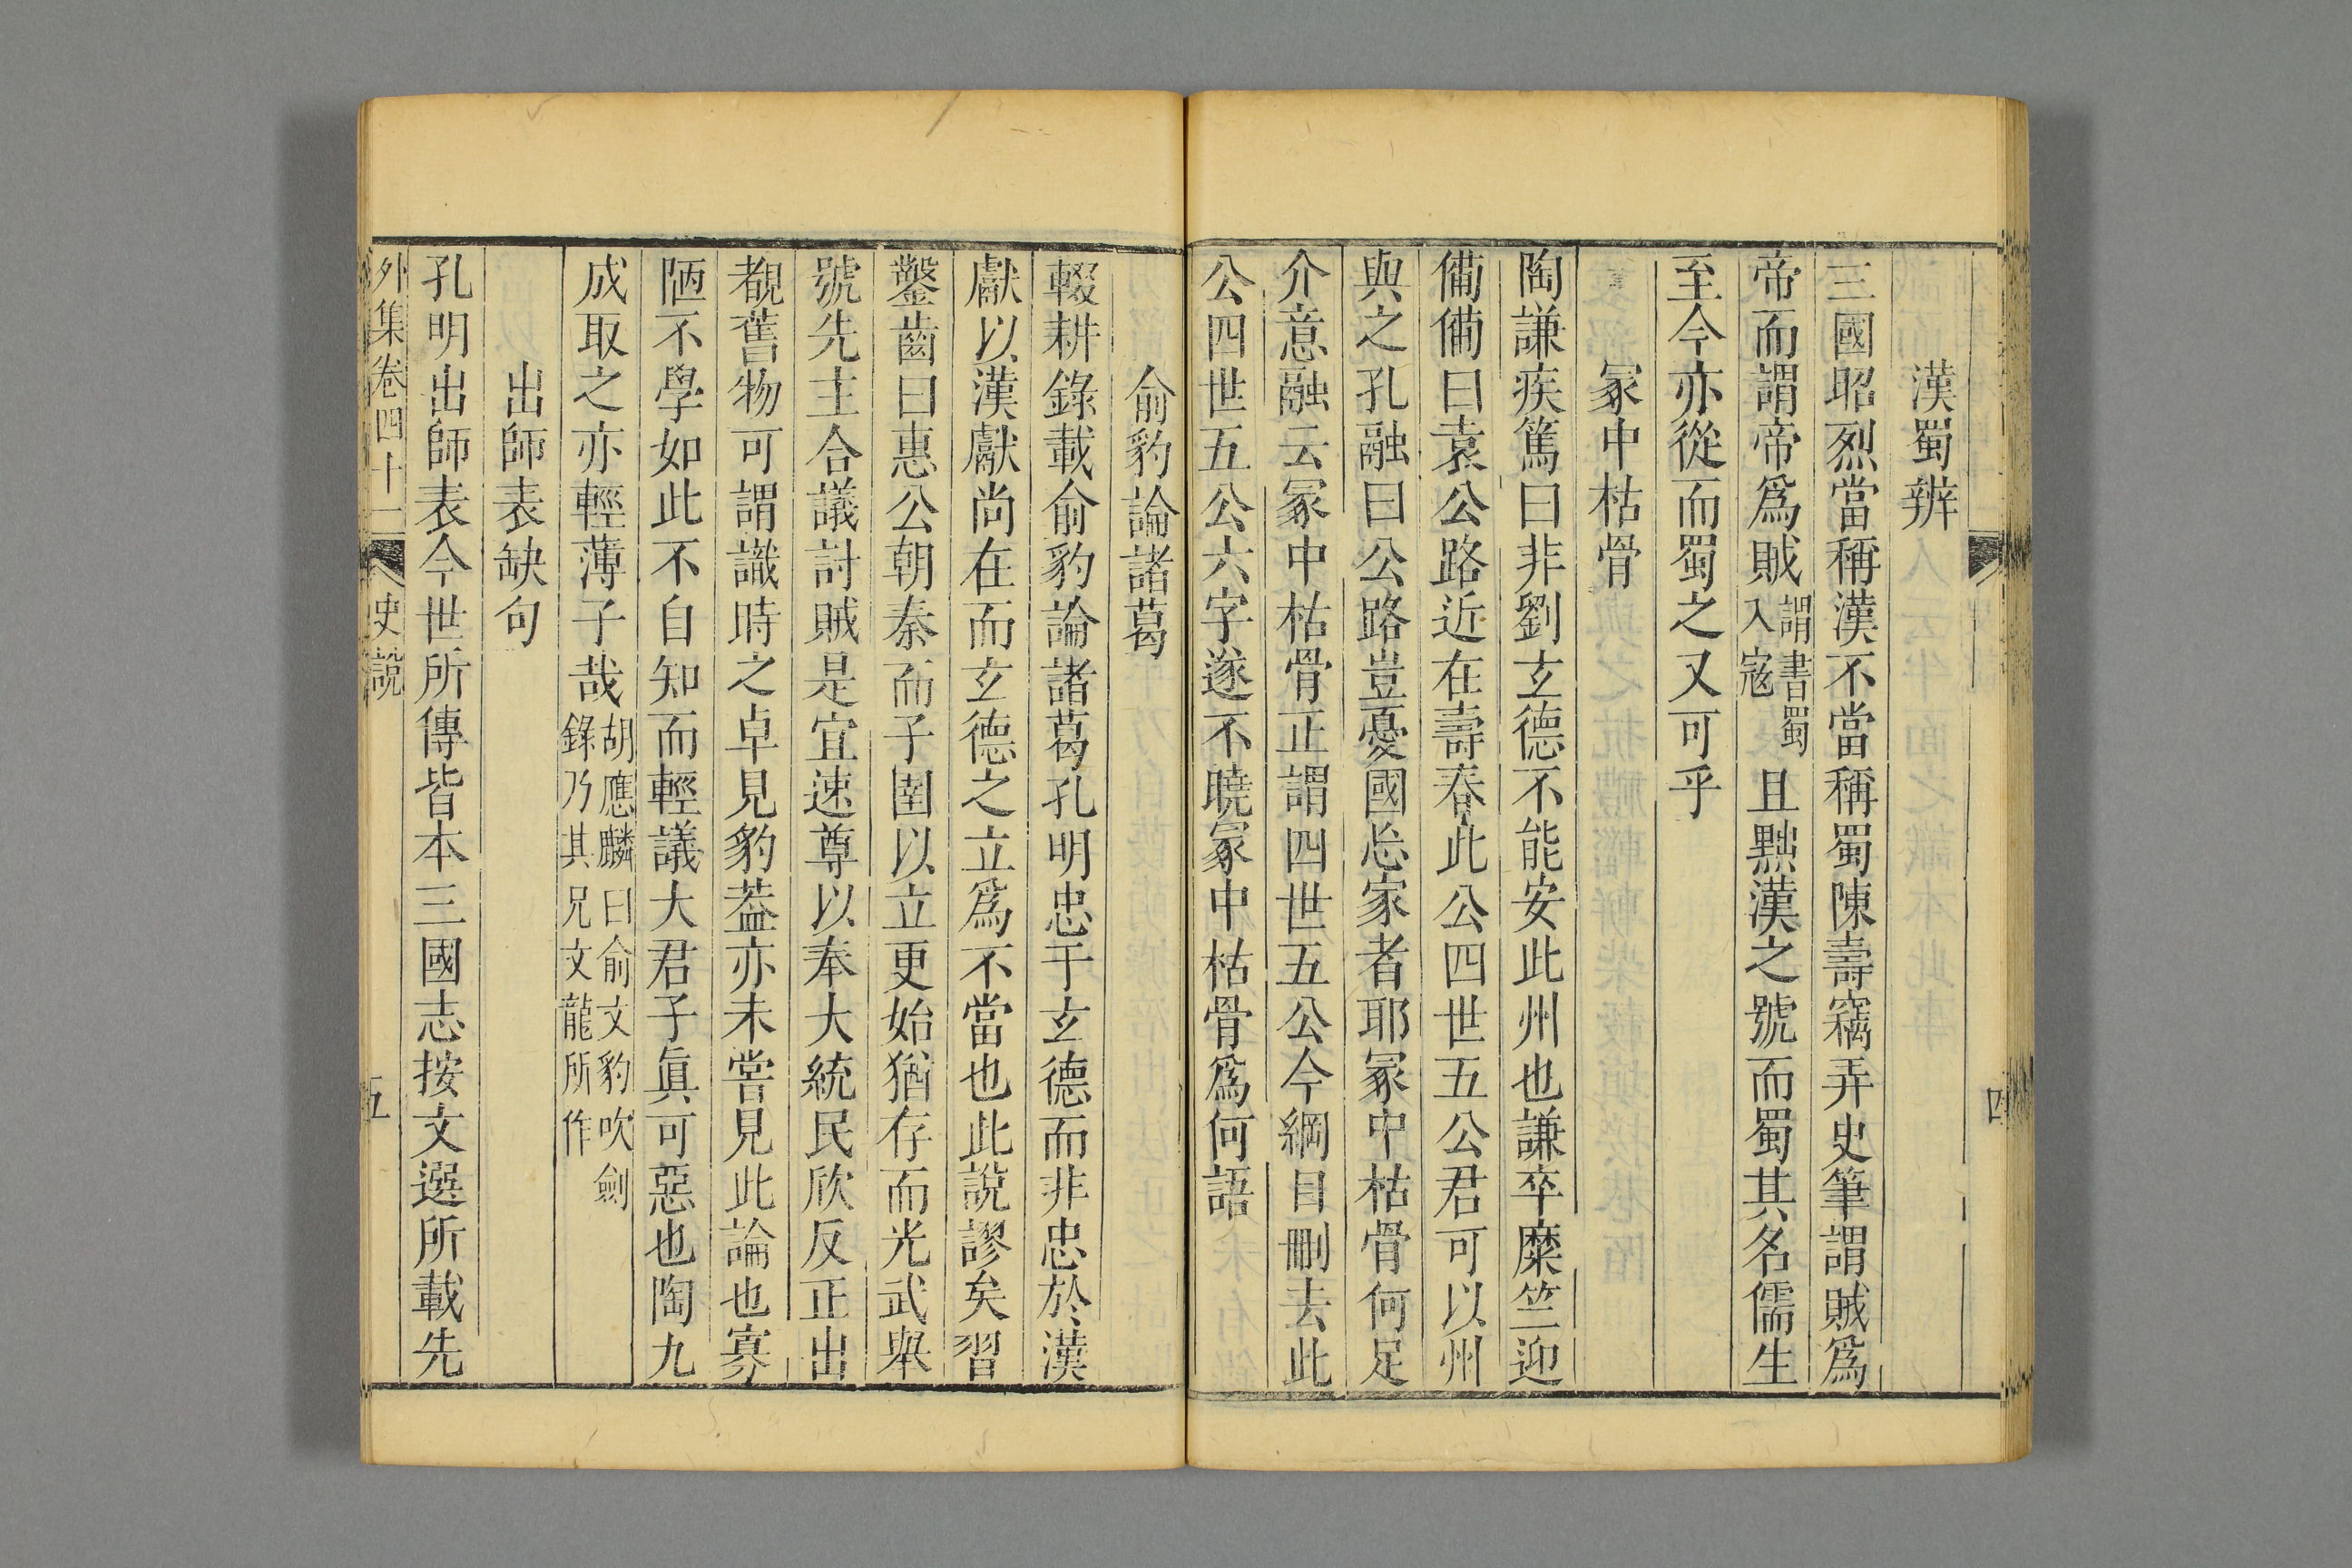 漢蜀辨
三國昭烈當稱漢不當稱蜀陳壽竊弄史筆謂賊爲
帝而謂帝爲賊謂書蜀入寇且黜漢之號而蜀其名儒生
至今亦從而蜀之又可乎
冢中枯骨
陶謙疾篤曰非劉玄德不能安此州也謙卒糜竺迎
備備曰袁公路近在壽春此公四世五公君可以州
與之孔融曰公路豈憂國忘家者耶冢中枯骨何足
介意融云冢中枯骨正謂四世五公今綱目刪去此
公四世五公六字遂不曉冢中枯骨爲何語
四
俞豹論諸葛
輟耕錄載俞豹論諸葛孔明忠于玄德而非忠於漢
獻以漢獻尚在而玄德之立爲不當也此說謬矣習
鑿齒曰惠公朝秦而子圉以立更始猶存而光武舉
號先主合議討賊是宜速尊以奉大統民欣反正出
覩舊物可謂識時之卓見豹葢亦未嘗見此論也寡
陋不學如此不自知而輕議大君子眞可惡也陶九
成取之亦輕薄子哉胡應麟曰俞文豹吹劍錄乃其兄文龍所作
出師表缺句
孔明出師表今世所傳皆本三國志按文選所載先
外集卷四十二 史說 五